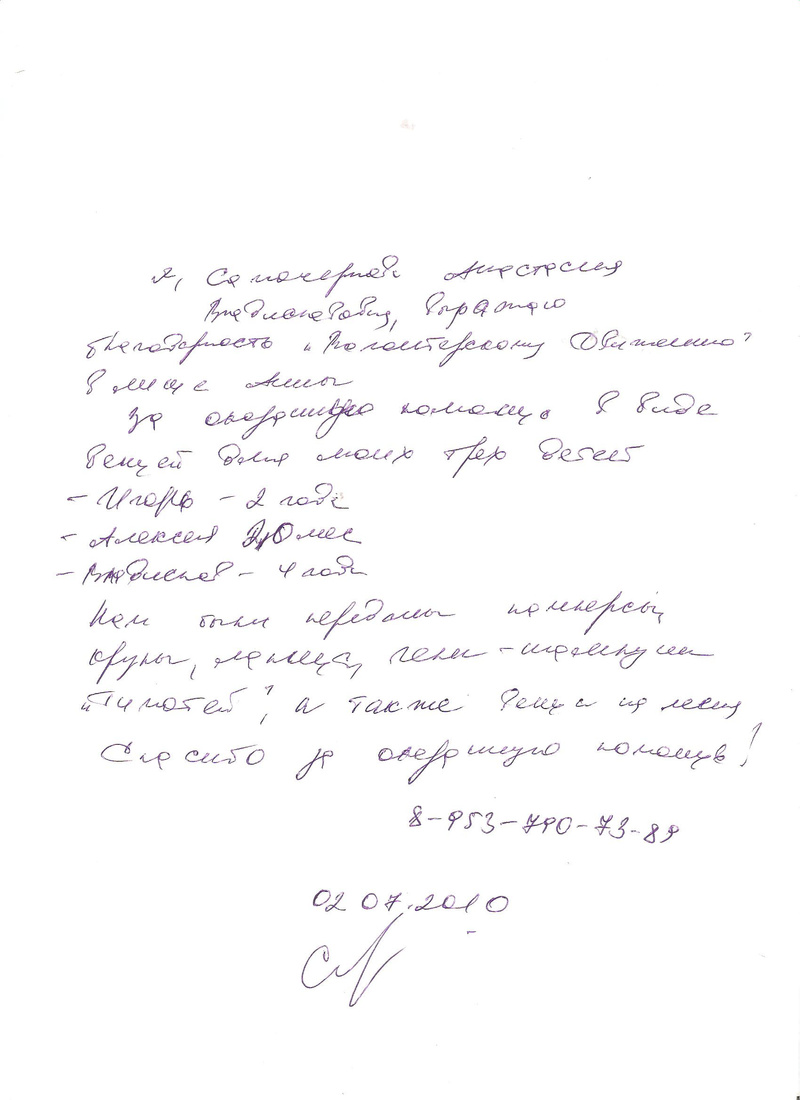 Я, Анастасия
Владиславовна, выражаю
благодарность „Волонтерскому Движению"
в лице Анны
За оказанную помощь в виде
вещей для моих трех детей
- Игорь - 2 года
- Алексей 10 мес
- Владислав - 4 года
Нам были переданы памперсы,
крупы, гель-шампунь
„Тимотей", а также вещи на меня
Спасибо за оказанную помощь!
8-953-790-73-89
02 07.2010